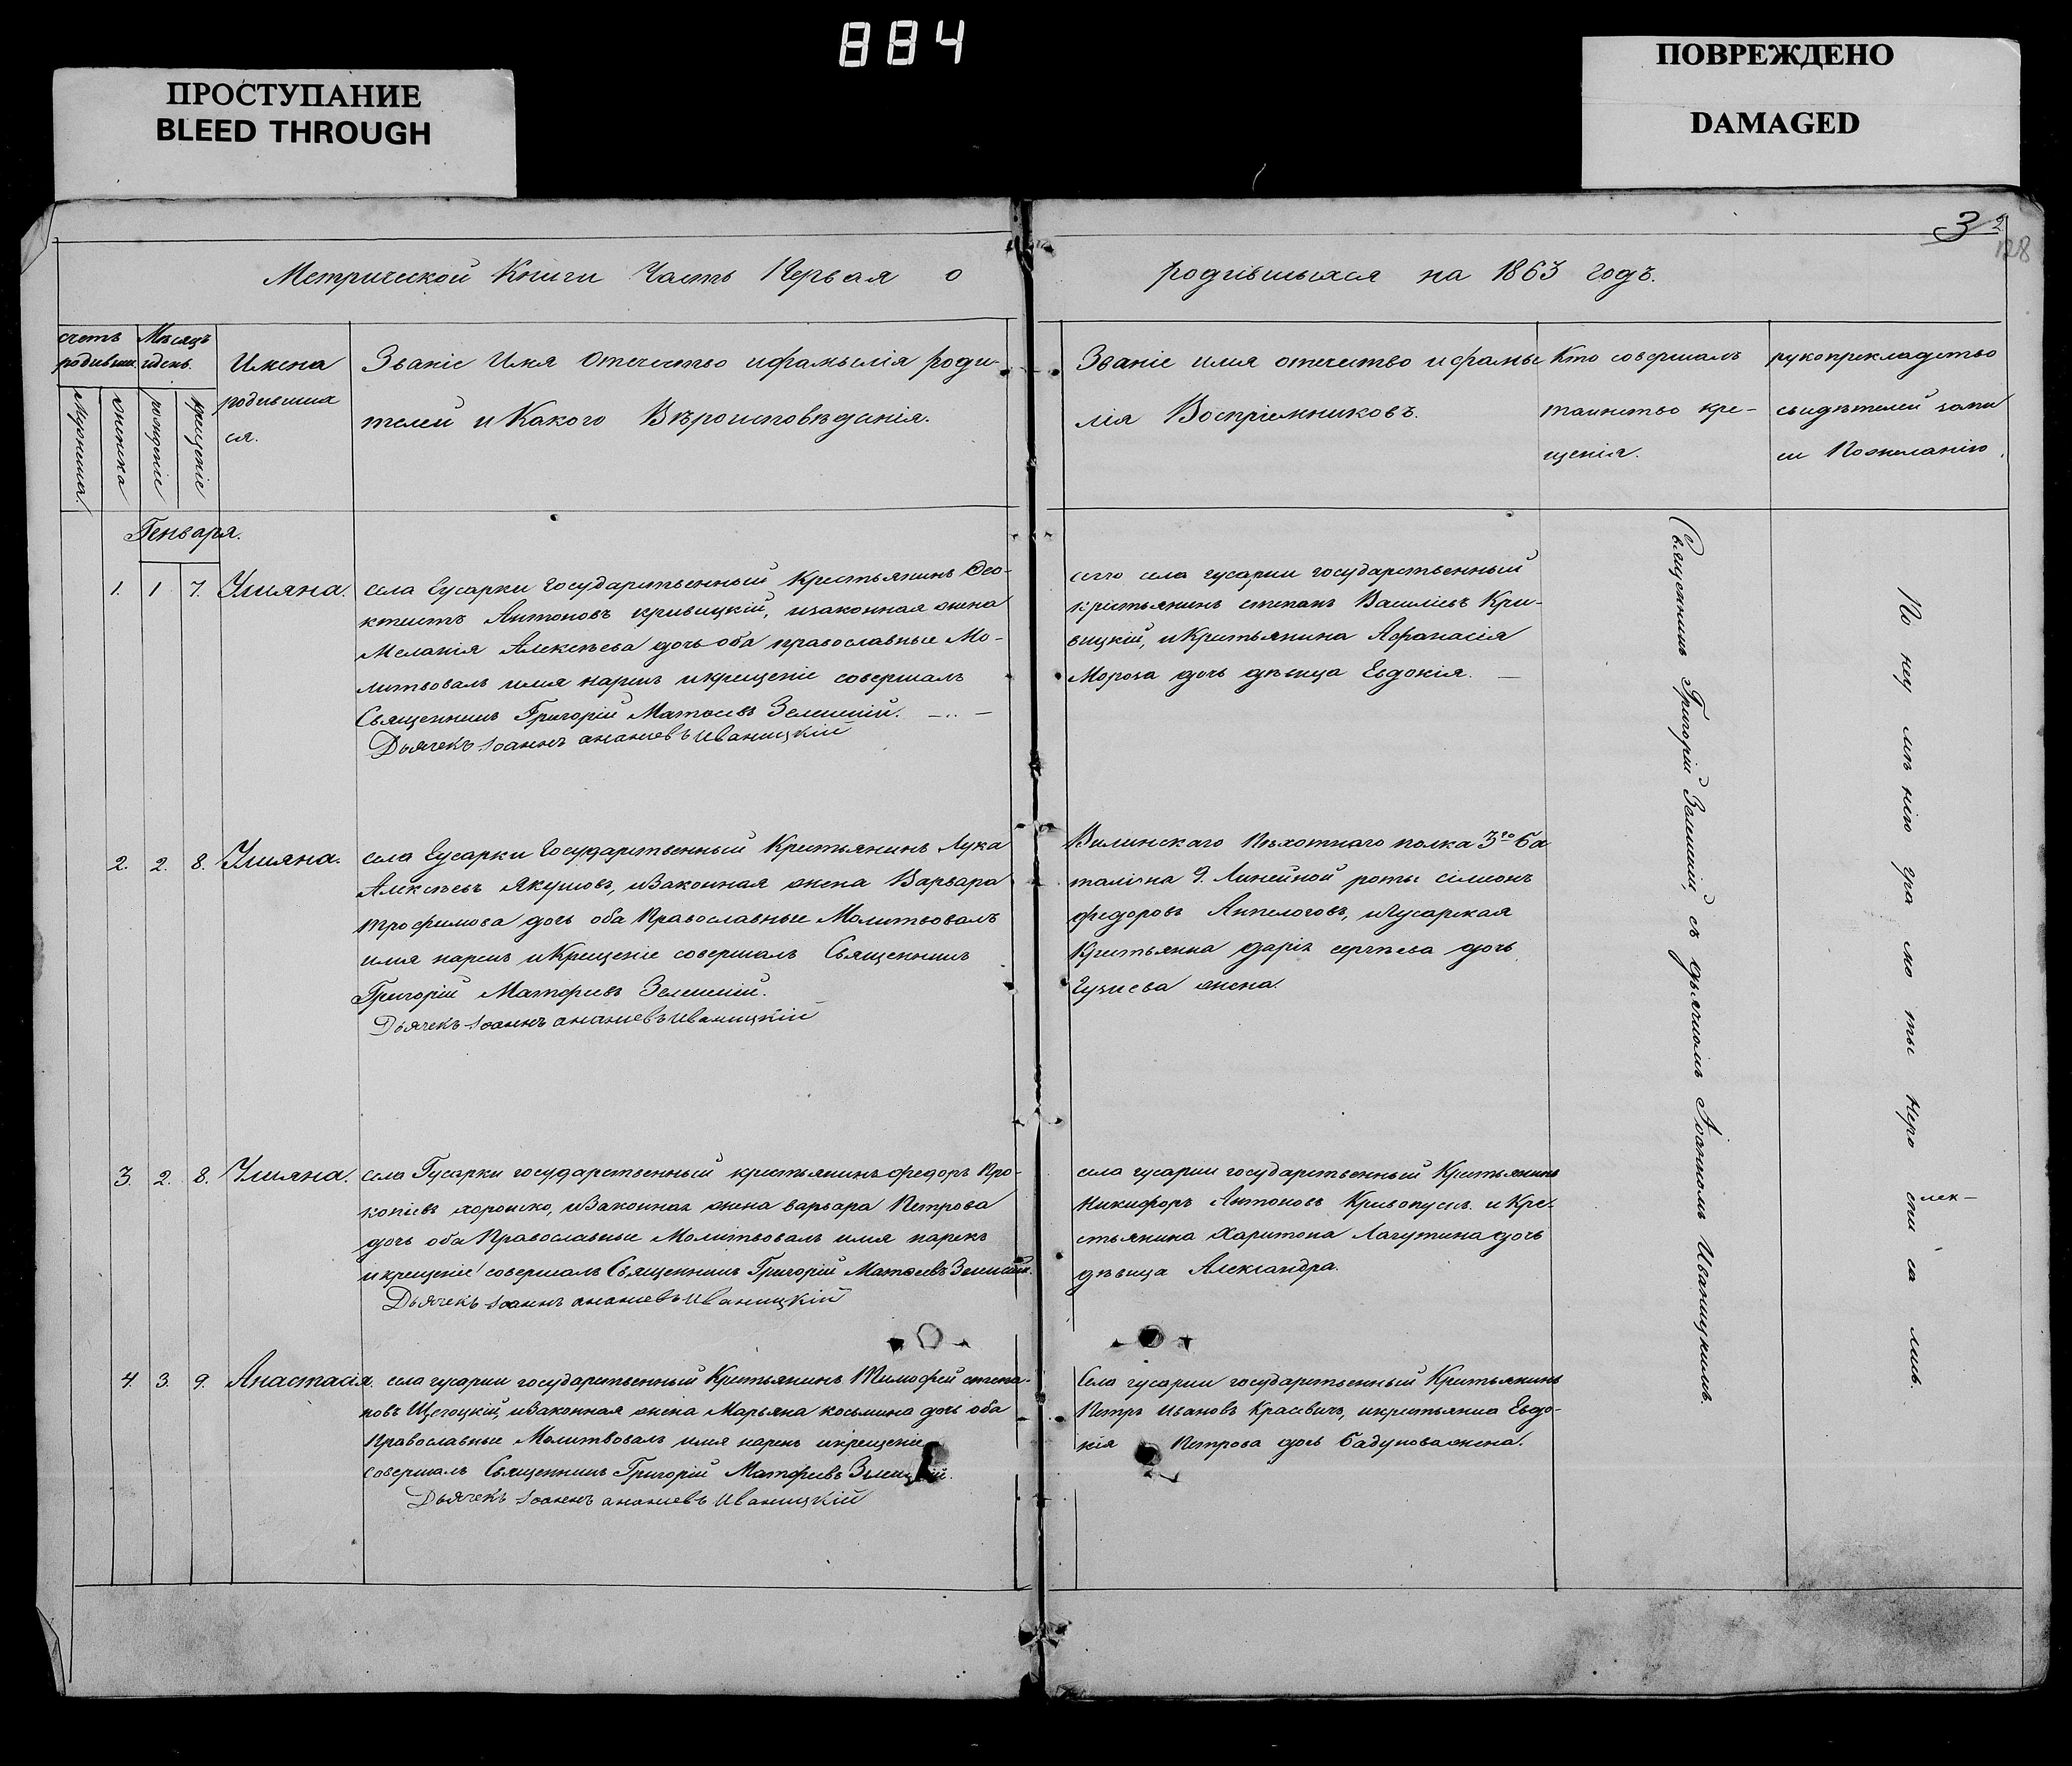 884
ПРОСТУПАНИЕ
BLEED THROUGH
ПОВРЕЖДЕНО
DAMAGED
3 2
128
Метрической Книги Часть Первая о
родившыхся на 1863 годъ.
счетъ родивши.
Мѣсяцъ идень.
Мужеска.
женска
рожденіе
крещеніе
Имена
родивших
ся.
Званіе Имя Отечество ифамылія роди-
телей и Какого Вѣроисповѣданія.
Званіе имя отечество ифамы
лія Воспріемниковъ.
Кто совершалъ
таинство кре-
щенія.
рукоприкладство
свидѣтелей запи
си Пожеланію
Генваря.
1. 1 7. Улияна.
села Гусарки Государственный Крестьянинъ Фео-
ктистъ Антоновъ кривицкій, изаконная жена
Меланія Алексѣева дочь оба православные Мо-
литвовалъ имя нарекъ икрещеніе совершалъ
Священникъ Григорій Матѳеевъ Зеленскій.
Дьячекъ Іоаннъ ананиевъ Иваницкій
сего села гусарки государственный
крістьянинъ стипанъ Василіевъ Кри-
вицкій, и Кристьянина Афанасія
Мороза дочь дѣвица Евдокія.
2. 2. 8. Улияна.
села Гусарки Государственный Крестьянинъ Лука
Алексѣевъ Якушовъ, иЗаконная жена Варвара
трофимова дочь оба Православные Молитвовалъ
имя нарекъ иКрещеніе совершалъ Священникъ
Григорій Матфеевъ Зеленскій.
Дьячекъ Іоаннъ ананиевъ Иваницкій
Вилинскаго Пѣхотнаго полка 3го ба
таліона 9. Линейной роты сімионъ
федоровъ, иГусарская
Крестьянка даріа сергѣева дочь
жена.
3. 2. 8. Улияна.
села Гусарки государственный крестьянинъ федоръ Про-
копіевъ хорошко, иЗаконная жена варвара Петрова
дочь оба Православные Молитвовалъ имя нарекъ
икрещеніе совершалъ Священникъ Григорій Матѳеевъ Зеленскій.
Дьячекъ Іоаннъ ананиевъ Иваницкій
села гусарки государственный Крестьянинъ
Никифоръ Антоновъ Кривопускъ. и Кре-
стьянина Харитона Лагутина дочь
дѣвица Александра.
4. 3. 9. Анастасія.
села гусарки государственный Кристьянинъ Тимофей степа-
новъ Щегоцкій, иЗаконная жена Марьяна косьмина дочь оба
Православные Молитвовалъ имя нарекъ икрещеніе
совершалъ Священникъ Григорій Матфеевъ Зеленскій.
Дьячекъ Іоаннъ ананиевъ Иваницкій
Села гусарки государственный Кристьянинъ
Петръ Ивановъ Красевичъ, икрестьянка Евдо-
кія Петрова дочь бадунова жена.
Священникъ Григорій Зеленскій, съ дьячкомъ Іоанномъ Иваницкимъ.
По неу мѣ нію гра мо ты Неро спи са лись.